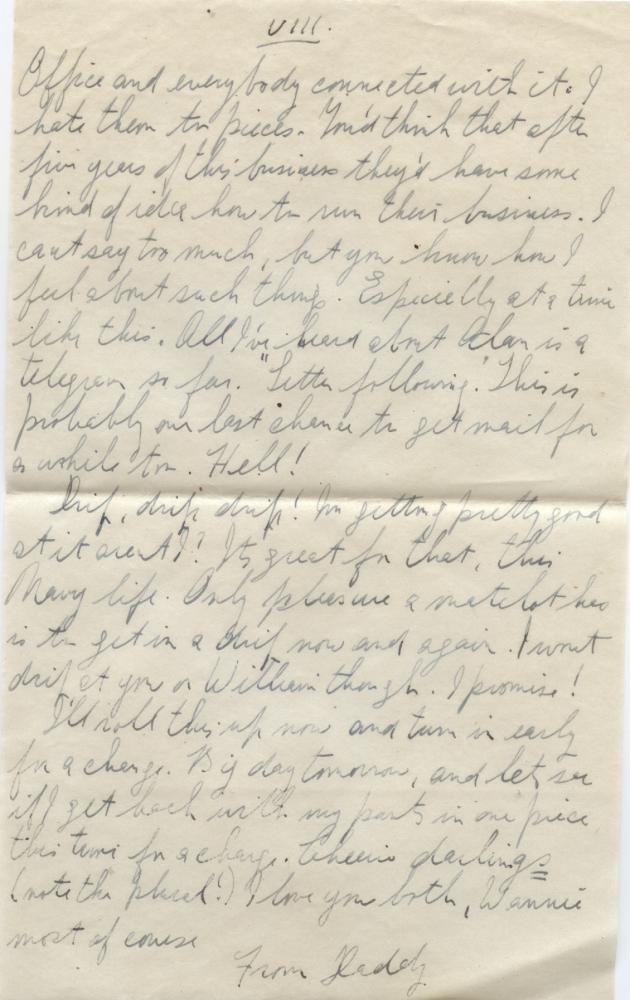 VIII.
Office and everybody connected with it. I
hate them to pieces. You'd think that after
five years of this business they'd have some
kind of idea how to run their business. I
cant say too much, but you know how I
feel about such things. Especially at a time
like this. All I've heard about Alan is a
telegram so far. "Letter following." This is
probably our last chance to get mail for
a while too. Hell!
Drip, drip drip! Im getting pretty good
at it arent I? Its great for that, this
Navy life. Only pleasure a matelot has
is to get in a drip now and again. I wont
drip at you or William though. I promise!
I'll roll this up now and turn in early
for a change. Big day tomorrow, and lets see
if I get back with my pants in one piece
this time for a change. Cheerio darlings
(note the plural!) I love you both, Wannie
most of course
From Daddy